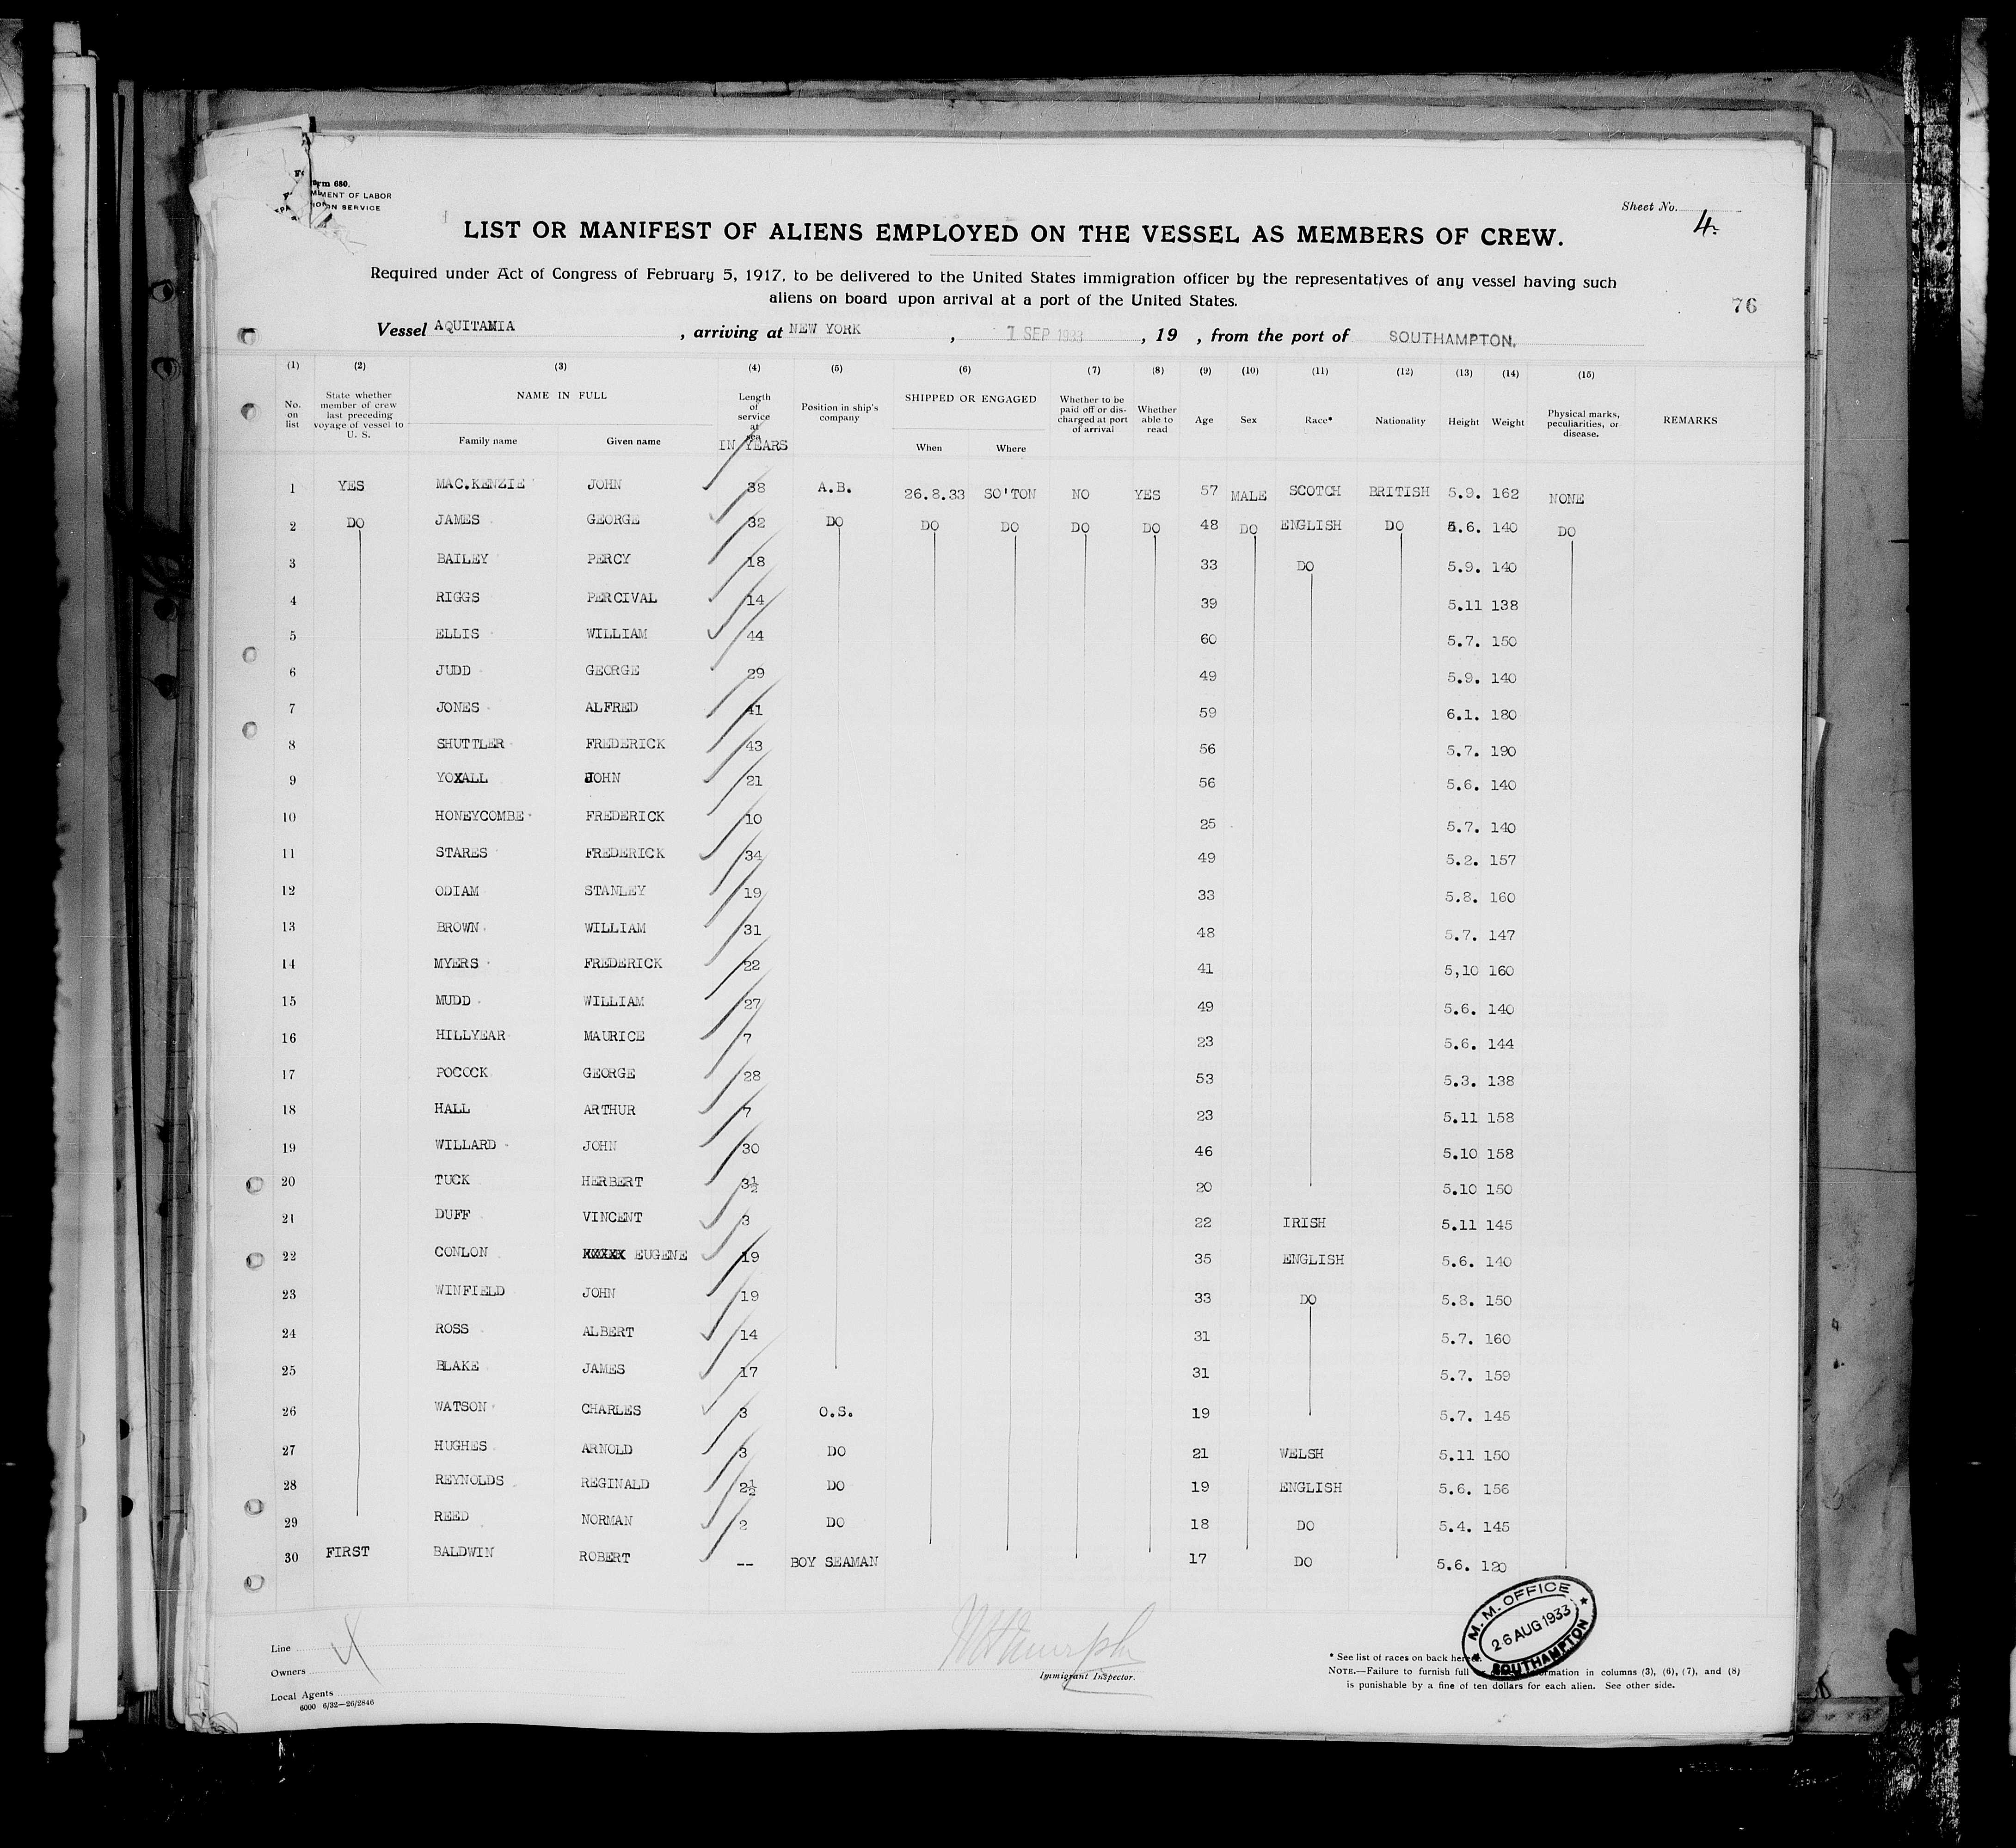 Form 680.
LIST OR MANIFEST OF ALIENS EMPLOYED ON THE VESSEL AS MEMBERS OF CREW.
Sheet No. 4.
Required under Act of Congress of February 5, 1917, to be delivered to the United States immigration officer by the representatives of any vessel having such
aliens on board upon arrival at a port of the United States.
76
Vessel AQUITANIA , arriving at NEW YORK , 1 SEP 1933 , 19 , from the port of SOUTHAMPTON.
(1) (2) (3) (4) (5) (6) (7) (8) (9) (10) (11) (12) (13) (14) (15)
No. on list State whether member of crew last preceding voyage of vessel to U. S. NAME IN FULL Family name Given name Length of service at sea IN YEARS Position in ship's company SHIPPED OR ENGAGED When Where Whether to be paid off or discharged at port of arrival Whether able to read Age Sex Race* Nationality Height Weight Physical marks, peculiarities, or disease. REMARKS
1 YES MAC.KENZIE JOHN 38 A.B. 26.8.33 SO'TON NO YES 57 MALE SCOTCH BRITISH 5.9. 162 NONE
2 DO JAMES GEORGE 32 DO DO DO DO DO 48 DO ENGLISH DO 5.6. 140 DO
3 BAILEY PERCY 18 33 DO 5.9. 140
4 RIGGS PERCIVAL 14 39 5.11 138
5 ELLIS WILLIAM 44 60 5.7. 150
6 JUDD GEORGE 29 49 5.9. 140
7 JONES ALFRED 41 59 6.1. 180
8 SHUTTLER FREDERICK 43 56 5.7. 190
9 YOXALL JOHN 21 56 5.6. 140
10 HONEYCOMBE FREDERICK 10 25 5.7. 140
11 STARES FREDERICK 34 49 5.2. 157
12 ODIAM STANLEY 19 33 5.8. 160
13 BROWN WILLIAM 31 48 5.7. 147
14 MYERS FREDERICK 22 41 5,10 160
15 MUDD WILLIAM 27 49 5.6. 140
16 HILLYEAR MAURICE 7 23 5.6. 144
17 POCOCK GEORGE 28 53 5.3. 138
18 HALL ARTHUR 7 23 5.11 158
19 WILLARD JOHN 30 46 5.10 158
20 TUCK HERBERT 3½ 20 5.10 150
21 DUFF VINCENT 3 22 IRISH 5.11 145
22 CONLON XXXXX EUGENE 19 35 ENGLISH 5.6. 140
23 WINFIELD JOHN 19 33 DO 5.8. 150
24 ROSS ALBERT 14 31 5.7. 160
25 BLAKE JAMES 17 31 5.7. 159
26 WATSON CHARLES 3 O.S. 19 5.7. 145
27 HUGHES ARNOLD 3 DO 21 WELSH 5.11 150
28 REYNOLDS REGINALD 2½ DO 19 ENGLISH 5.6. 156
29 REED NORMAN 2 DO 18 DO 5.4. 145
30 FIRST BALDWIN ROBERT -- BOY SEAMAN 17 DO 5.6. 120
M. M. OFFICE
26 AUG 1933
SOUTHAMPTON
Line
Owners
Local Agents
6000 6/32—26/2846
Immigrant Inspector.
* See list of races on back hereof.
NOTE.—Failure to furnish full information in columns (3), (6), (7), and (8)
is punishable by a fine of ten dollars for each alien. See other side.